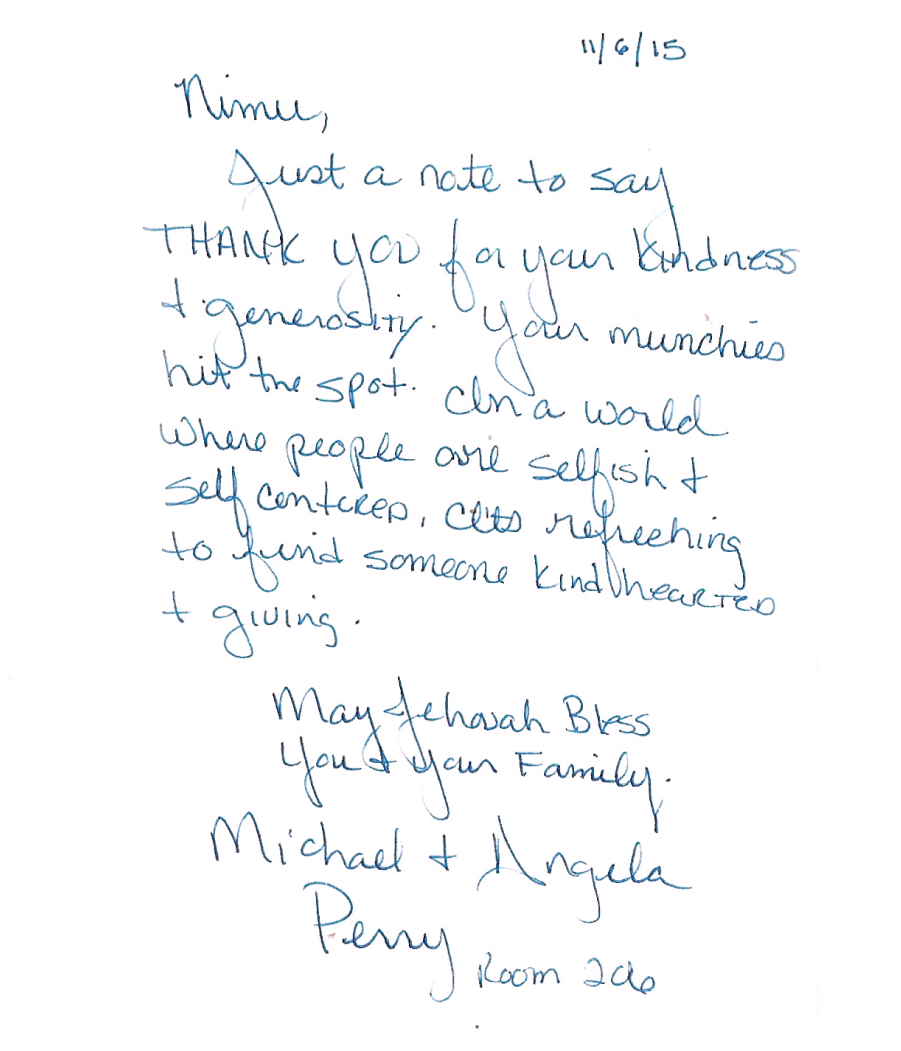 11/6/15
Nimu,
Just a note to say
THANK you for your kindness
+ generosity. Your munchies
hit the spot. In a world
where people are selfish +
self centered, it's refreshing
to find someone kind hearted
+ giving.
May Jehovah Bless
You + Your Family.
Michael + Angela
Perry
Room 206